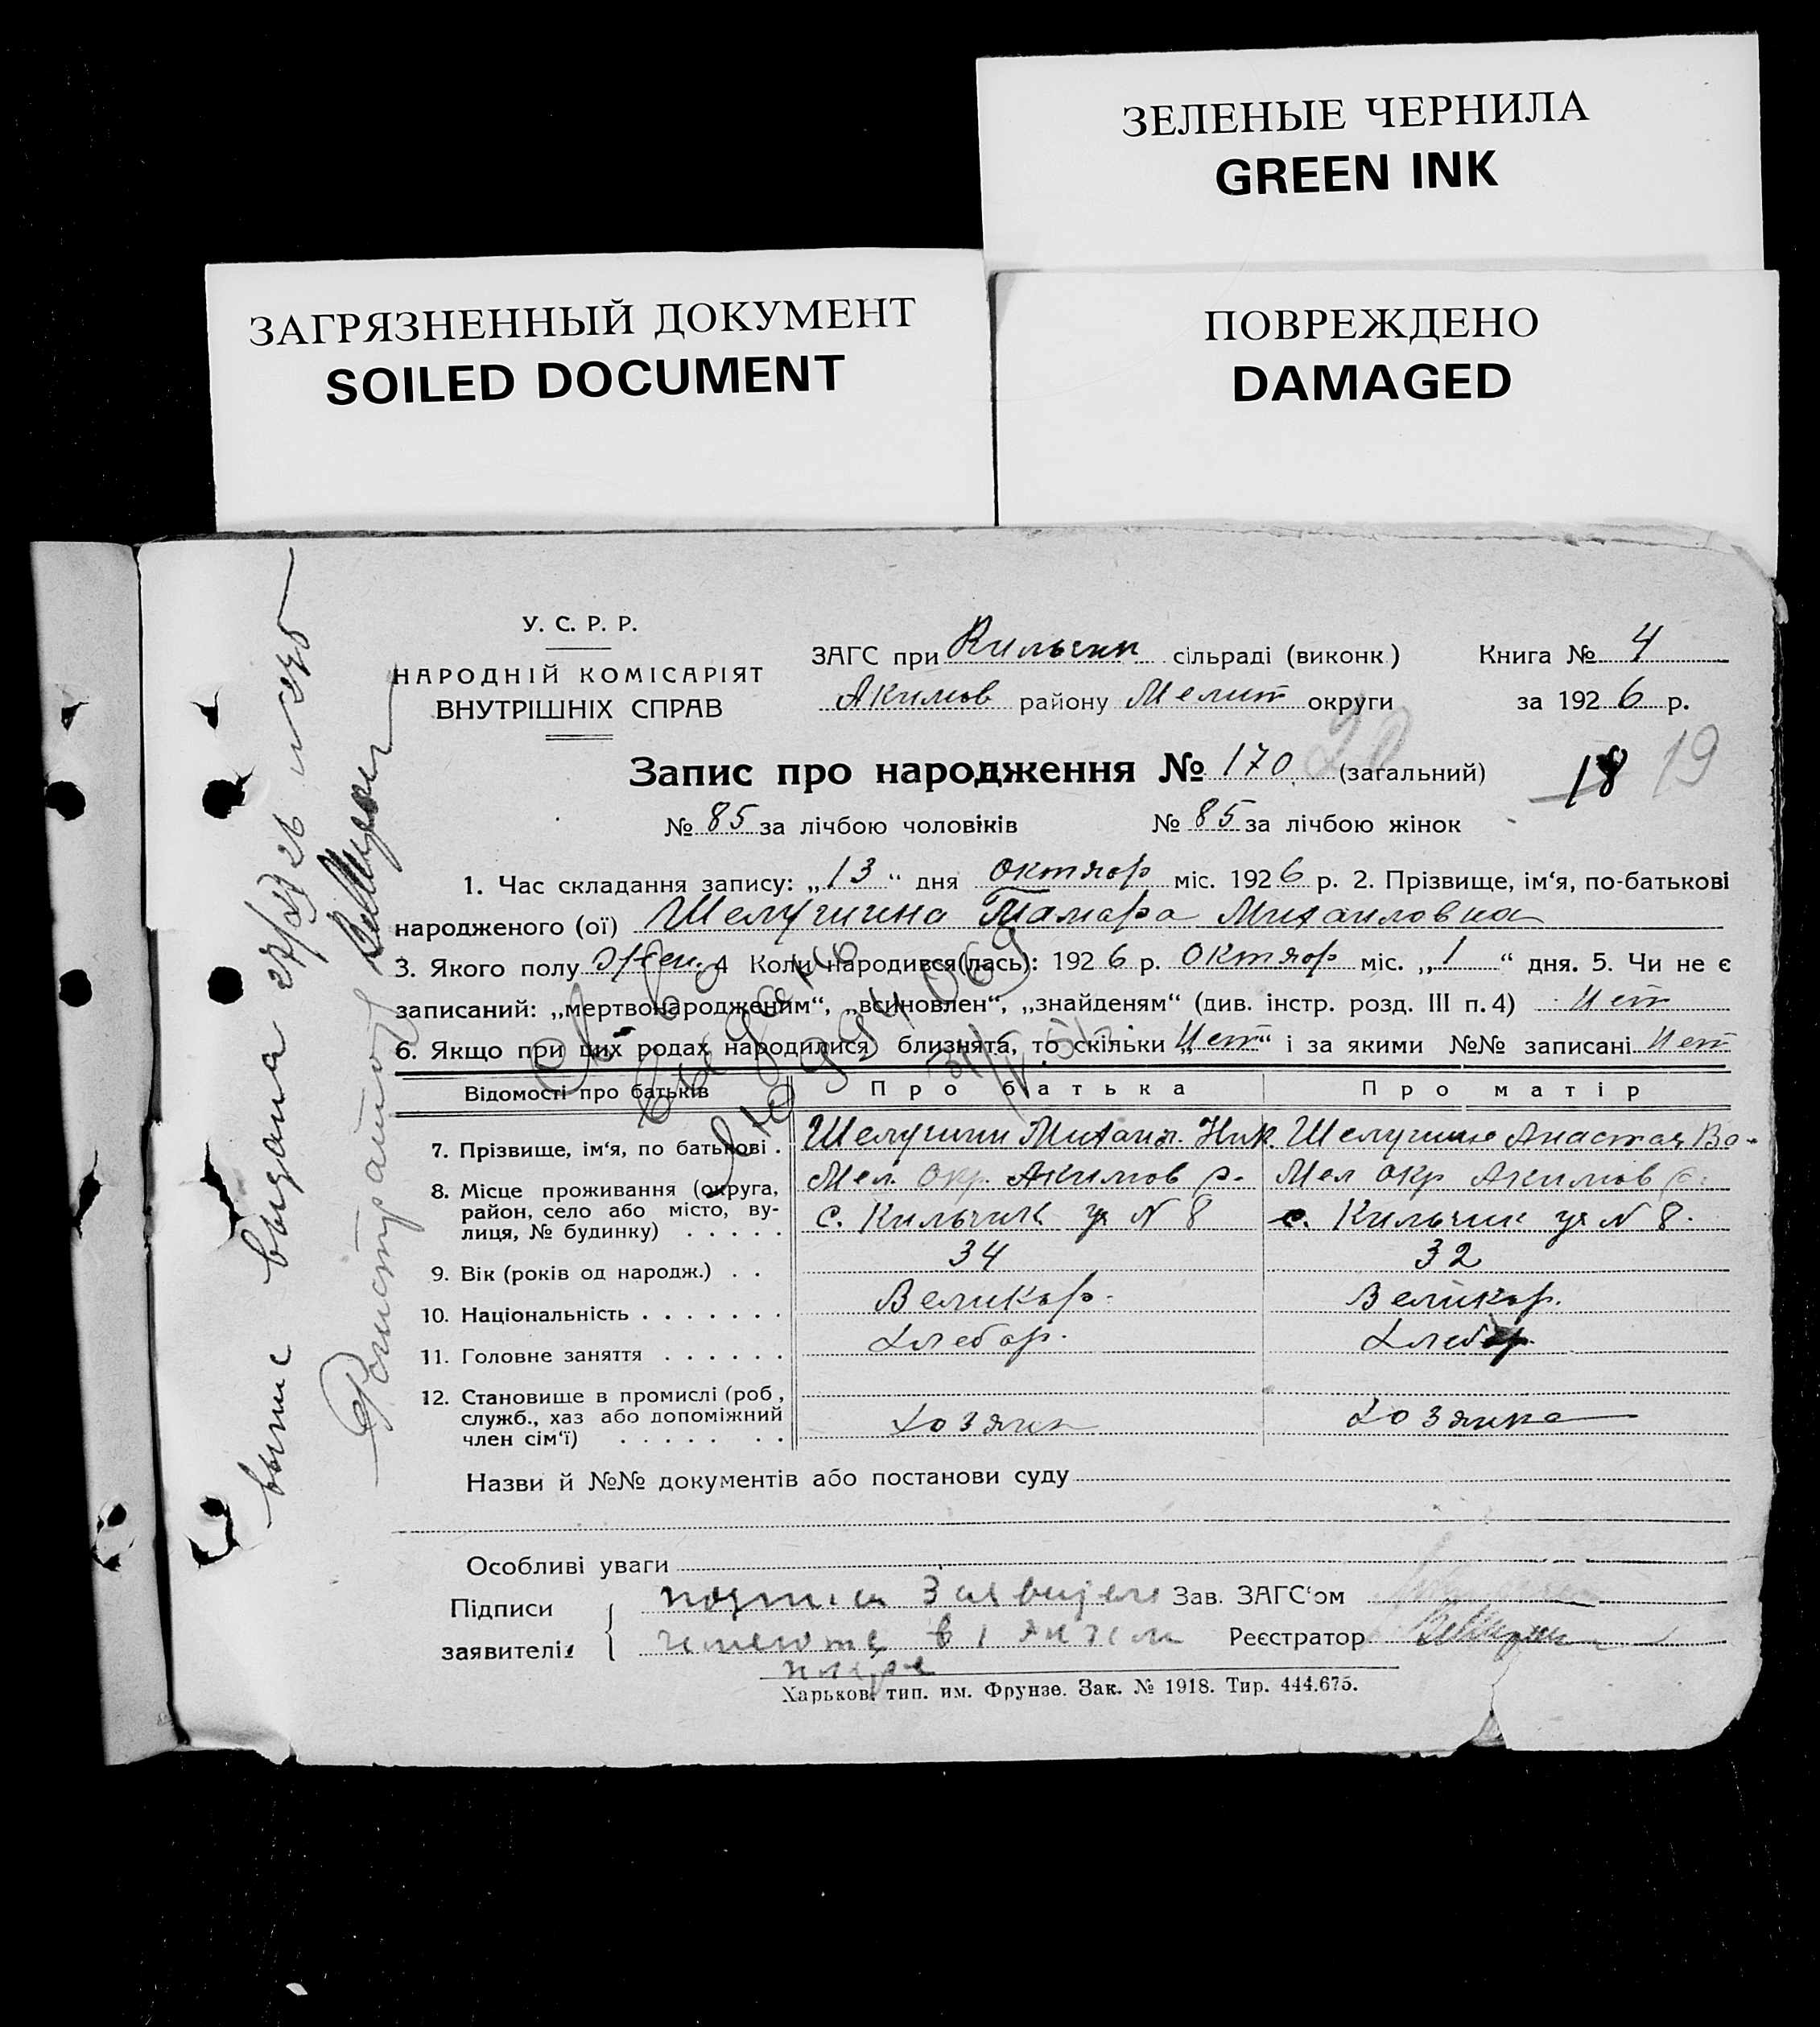 ЗЕЛЕНЫЕ ЧЕРНИЛА
GREEN INK
ЗАГРЯЗНЕННЫЙ ДОКУМЕНТ
SOILED DOCUMENT
ПОВРЕЖДЕНО
DAMAGED
У. С. Р. Р.
НАРОДНІЙ КОМІСАРІЯТ
ВНУТРІШНІХ СПРАВ
ЗАГС при Кильчик сільраді (виконк) Книга № 4
Акимов району Мелит округи за 1926 р.
Запис про народження № 170 20 (загальний) 18 19
№ 85 за лічбою чоловіків № 85 за лічбою жінок
1. Час складання запису: „13“ дня октяор міс. 1926 р. 2. Прізвище, ім‘я, по-батькові
народженого (ої) Шелугина Тамара Михаиловна
3. Якого полу жен. 4 Коли народився(лась): 1926 р. октяор міс. „1“ дня. 5. Чи не є
записаний: „мертвонародженим“, „всиновлен“, „знайденям“ (див. інстр. розд. III п. 4) нет
6. Якщо при цих родах народилися близнята, то скільки „нет“ і за якими №№ записані нет
Відомості про батьків Про батька Про матір
7. Прізвище, ім‘я, по батькові . Шелугин Михаил. Ник. Шелугина Анастас Ва-
8. Місце проживання (округа, район, село або місто, вулиця, № будинку) . . . . . Мел. окр. Акимов р. Мел окр Акимов р.
с. Кильчик ул N 8 с. Кильчик ул N 8.
9. Вік (років од народж.) . . 34 32
10. Національність . . . . . . . Великор. Великор.
11. Головне заняття . . . . . . Хлебор. Хлебор.
12. Становище в промислі (роб, служб., хаз або допоміжний член сім‘ї) . . . . . . . Хозяин Хозяика
Назви й №№ документів або постанови суду
Особливі уваги
Підписи заявителів
Зав. ЗАГС‘ом
имеются в 1 экзем
Реєстратор
Харьков, тип. им. Фрунзе. Зак. № 1918. Тир. 444.675.
выпис выдана